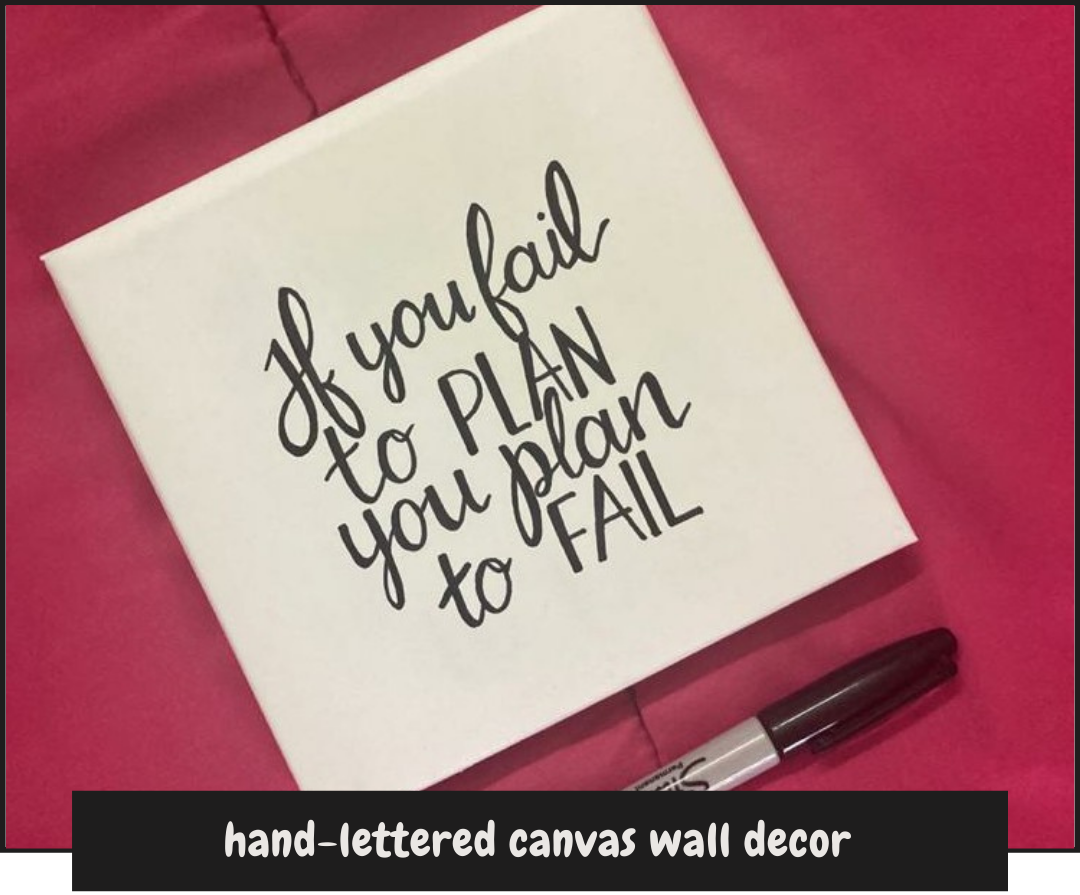 If you fail
to PLAN
you plan
to FAIL
Permanent
hand-lettered canvas wall decor